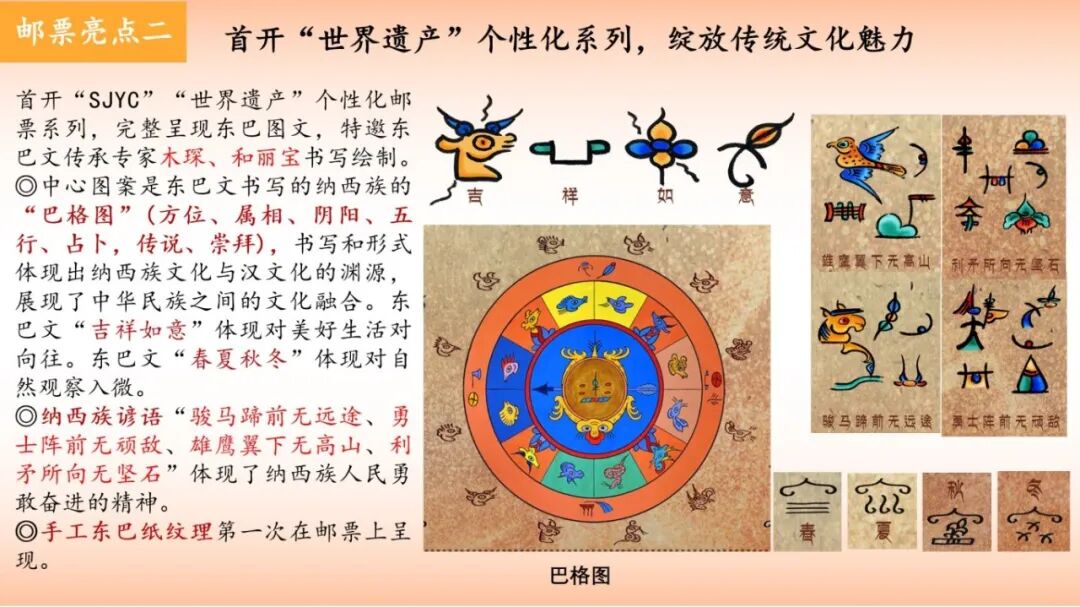 邮票亮点二
首开“世界遗产”个性化系列，绽放传统文化魅力
首开“SJYC”“世界遗产”个性化邮
票系列，完整呈现东巴图文，特邀东
巴文传承专家木琛、和丽宝书写绘制。
◎中心图案是东巴文书写的纳西族的
“巴格图”(方位、属相、阴阳、五
行、占卜，传说、崇拜)，书写和形式
体现出纳西族文化与汉文化的渊源，
展现了中华民族之间的文化融合。东
巴文“吉祥如意”体现对美好生活对
向往。东巴文“春夏秋冬”体现对自
然观察入微。
◎纳西族谚语“骏马蹄前无远途、勇
士阵前无顽敌、雄鹰翼下无高山、利
矛所向无坚石”体现了纳西族人民勇
敢奋进的精神。
◎手工东巴纸纹理第一次在邮票上呈
现。
吉祥如意
雄鹰翼下无高山
利矛所向无坚石
骏马蹄前无远途
勇士阵前无顽敌
春
夏
秋
冬
巴格图